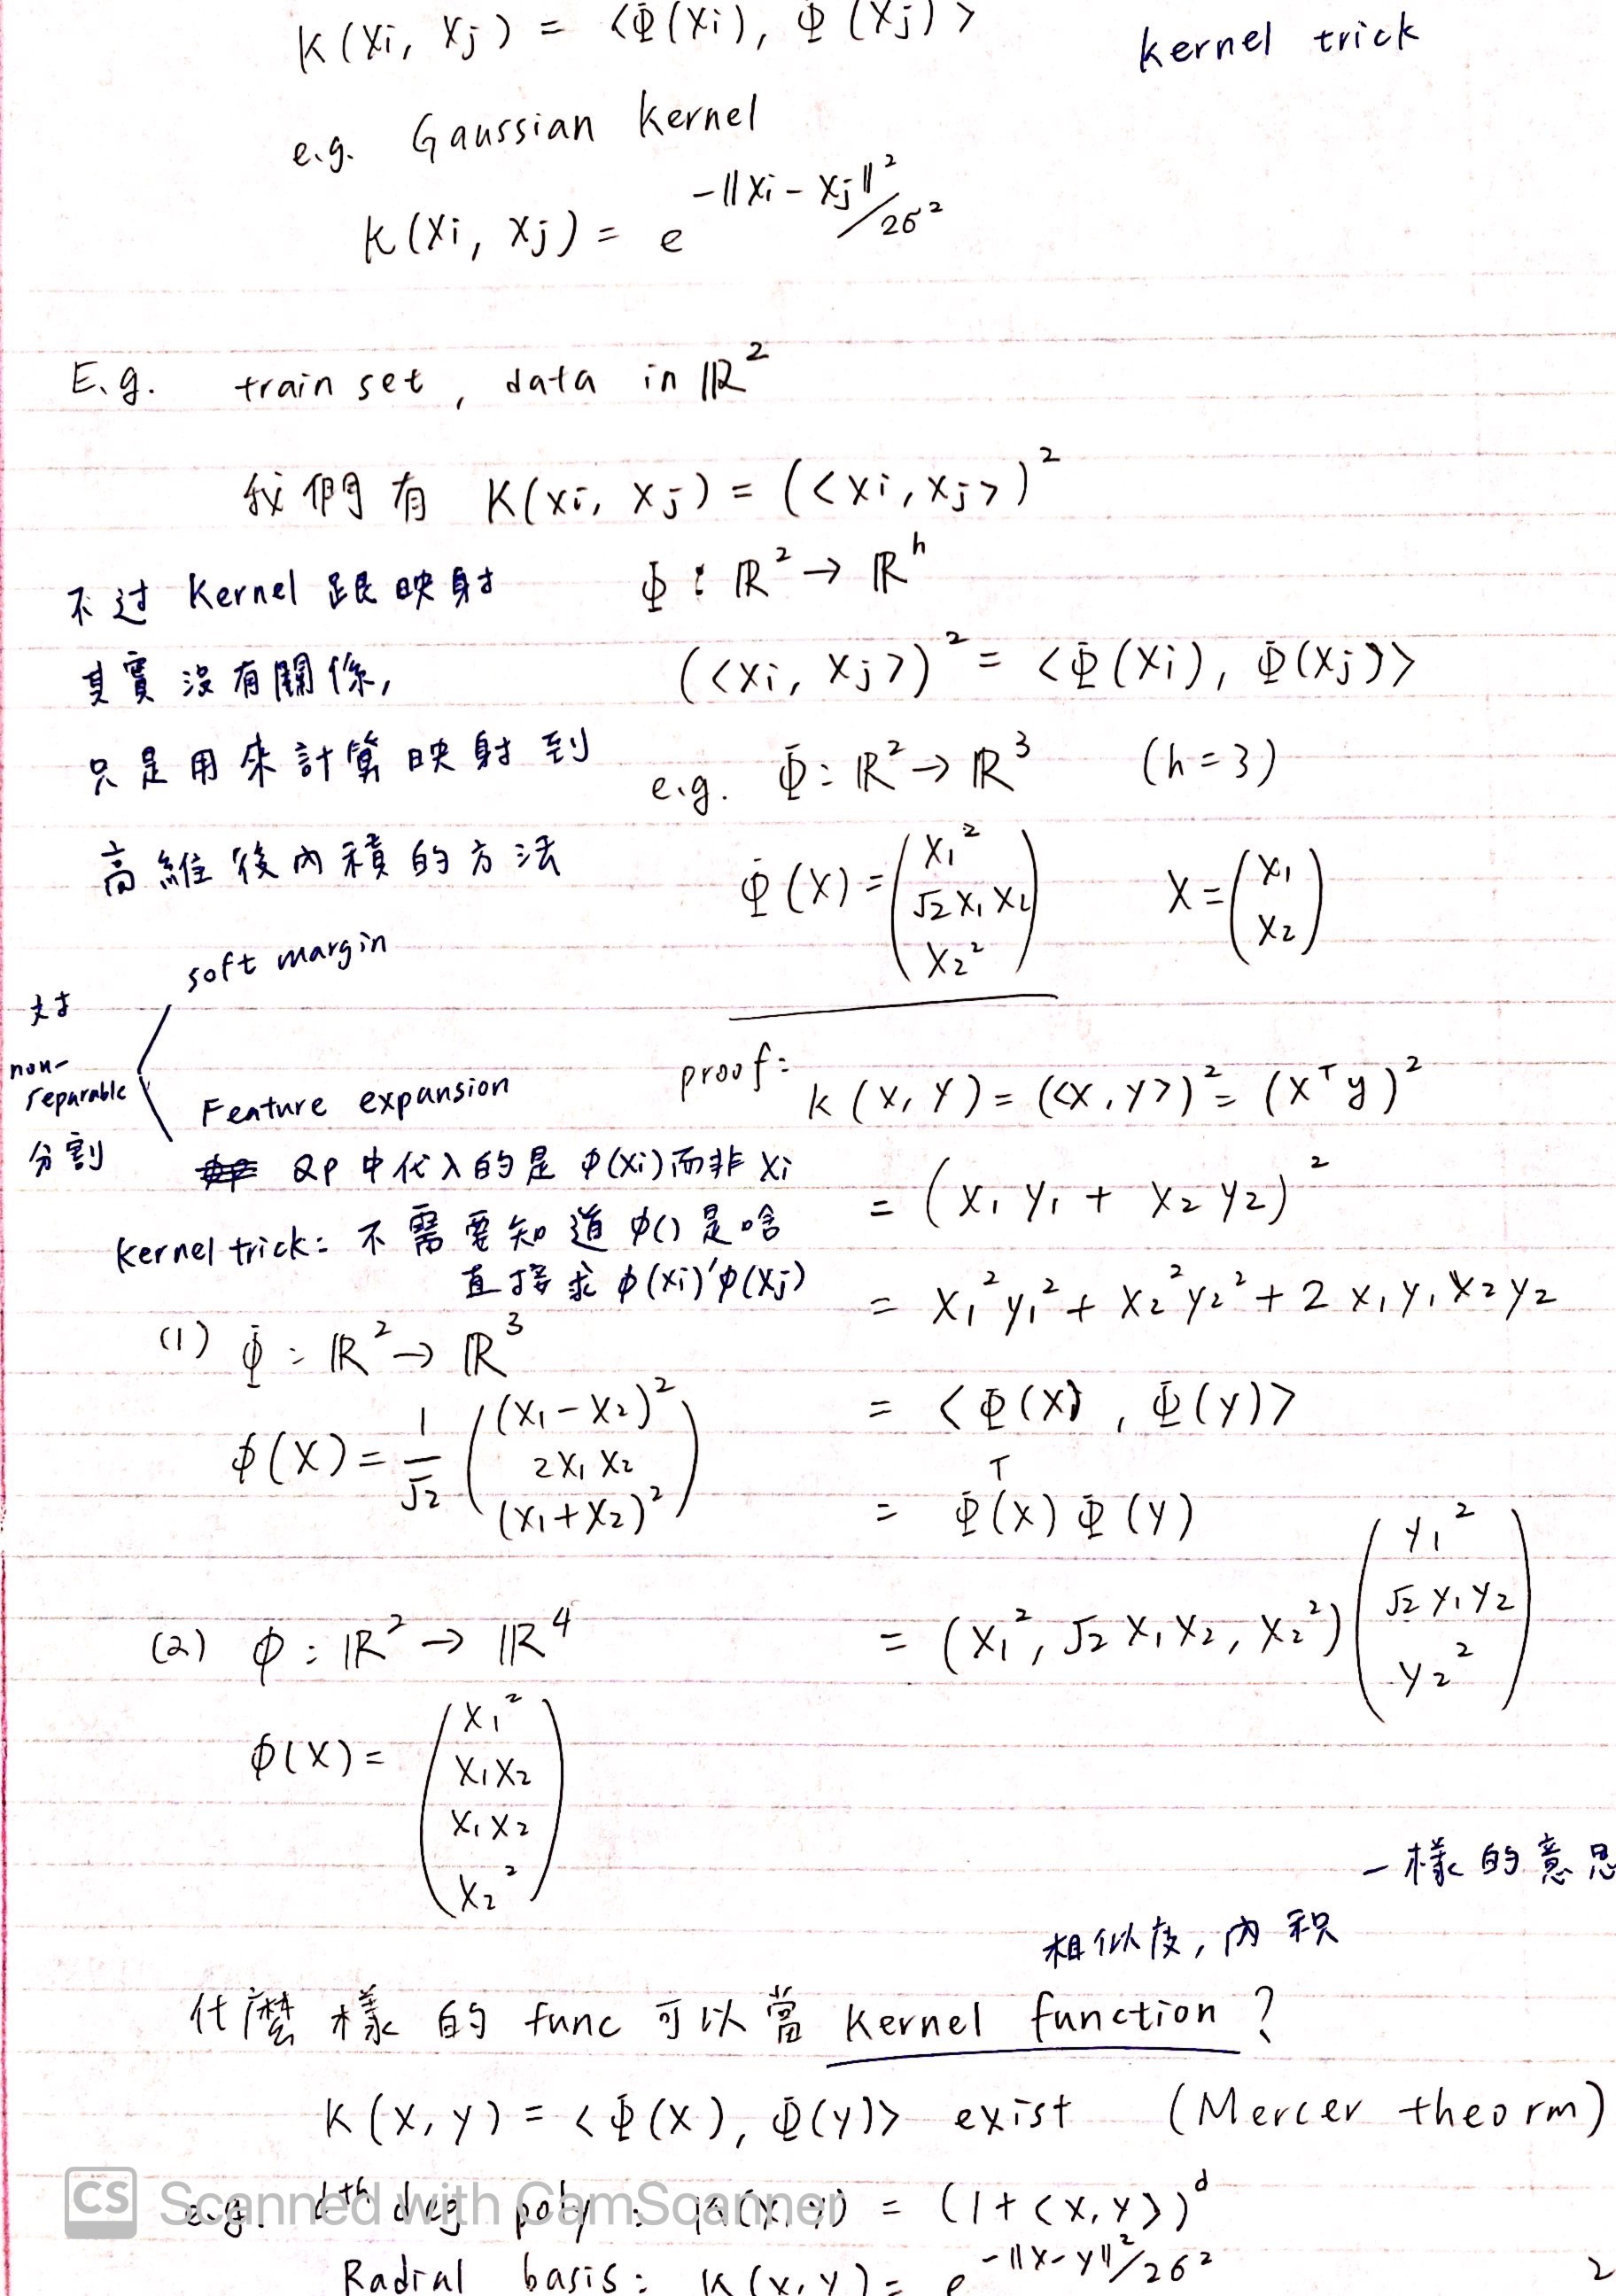 K(Xi, Xj) = <Φ(Xi), Φ(Xj)>
kernel trick
e.g. Gaussian kernel
K(Xi, Xj) = e^(-||Xi - Xj||²/2σ²)
E.g. train set, data in ℝ²
我們有 K(Xi, Xj) = (<Xi, Xj>)²
Φ : ℝ² → ℝʰ
(<Xi, Xj>)² = <Φ(Xi), Φ(Xj)>
e.g. Φ: ℝ² → ℝ³ (h=3)
Φ(X) = (X₁², √2 X₁X₂, X₂²) X = (X₁, X₂)
不过 Kernel 跟映射
其實沒有關係,
只是用來計算映射到
高維後內積的方法
soft margin
对
non-
separable
分割
Feature expansion
QP中代入的是 φ(Xi)而非 Xi
kernel trick: 不需要知道 φ()是啥
直接求 φ(Xi)'φ(Xj)
(1) Φ: ℝ² → ℝ³
φ(X) = 1/√2 ((X₁-X₂)², 2X₁X₂, (X₁+X₂)²)
(2) φ: ℝ² → ℝ⁴
φ(X) = (X₁², X₁X₂, X₁X₂, X₂²)
proof:
K(X,Y) = (<X,Y>)² = (Xᵀy)²
= (X₁Y₁ + X₂Y₂)²
= X₁²Y₁² + X₂²Y₂² + 2X₁Y₁X₂Y₂
= <Φ(X), Φ(Y)>
= Φᵀ(X)Φ(Y)
= (X₁², √2 X₁X₂, X₂²) (Y₁², √2 Y₁Y₂, Y₂²)
一樣的意思
相似度, 內积
什麼樣的 func 可以當 Kernel function?
K(X,y) = <Φ(X), Φ(y)> exist (Mercer theorm)
e.g. dᵗʰ deg poly: K(X,Y) = (1+<X,Y>)ᵈ
Radial basis: K(X,Y) = e^(-||X-Y||²/2σ²)
2
CS Scanned with CamScanner